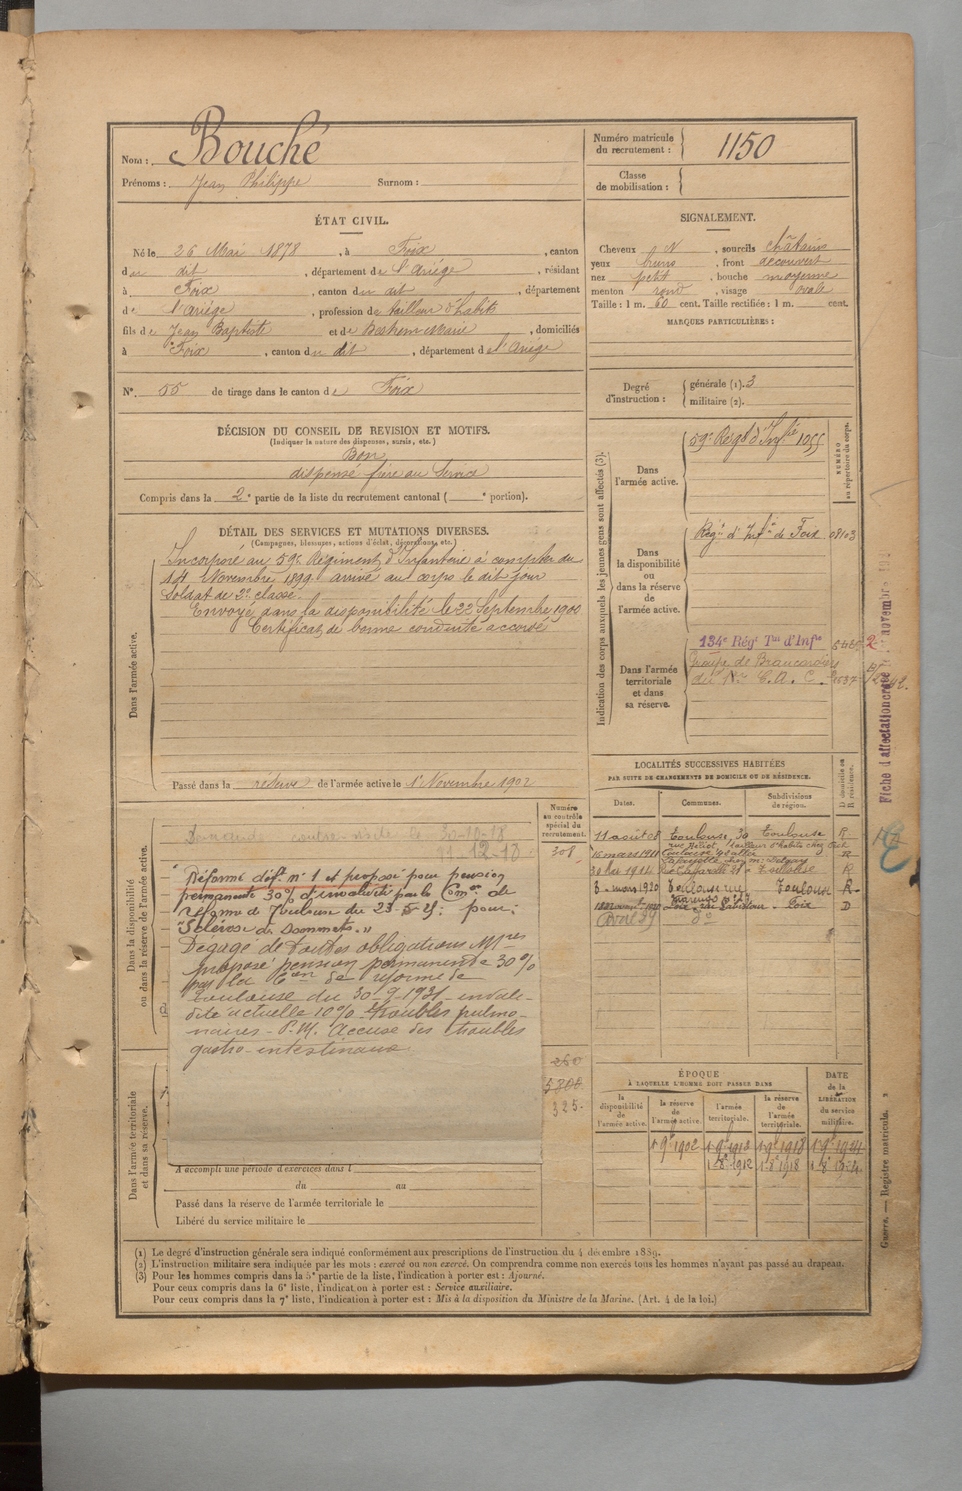 Nom : Bouché
Prénoms : Jean Philippe Surnom :
Numéro matricule du recrutement : 1150
Classe de mobilisation :
ÉTAT CIVIL.
Né le 26 Mai 1878, à Foix, canton
du dit, département de l'Ariége, résidant
à Foix, canton du dit, département
de l'Ariége, profession de tailleur d'habits
fils de Jean Baptiste et de Marie, domiciliés
à Foix, canton du dit, département de l'Ariége
SIGNALEMENT.
Cheveux N, sourcils châtains
yeux bruns, front découvert
nez petit, bouche moyenne
menton rond, visage ovale
Taille : 1 m. 60 cent. Taille rectifiée : 1 m. cent.
MARQUES PARTICULIÈRES :
N° 55 de tirage dans le canton de Foix
Degré d'instruction : générale (1). 3
militaire (2).
DÉCISION DU CONSEIL DE REVISION ET MOTIFS.
(Indiquer la nature des dispenses, sursis, etc.)
Bon
dispensé frère au Service
Compris dans la 2e partie de la liste du recrutement cantonal ( e portion).
DÉTAIL DES SERVICES ET MUTATIONS DIVERSES.
(Campagnes, blessures, actions d'éclat, décorations, etc.)
Dans l'armée active.
Incorporé au 59e Régiment d'Infanterie à compter du
Novembre 1899 arrivé au corps le dit jour
Soldat de 2e classe.
Envoyé dans la disponibilité le 22 Septembre 1900
Certificat de bonne conduite accordé
Passé dans la réserve de l'armée active le 1r Novembre 1902
Indication des corps auxquels les jeunes gens sont affectés (3).
NUMÉRO au répertoire du corps.
Dans l'armée active.
59e Régt d'Infie 1055
Dans la disponibilité ou dans la réserve de l'armée active.
Régt d'Inf. de Foix 08103
Dans l'armée territoriale et dans sa réserve.
134e Régt Tal d'Infie
Groupe de Brancardiers
du C. A. C.
Fiche d'affectation novembre
LOCALITÉS SUCCESSIVES HABITÉES
PAR SUITE DE CHANGEMENTS DE DOMICILE OU DE RÉSIDENCE.
Dates. Communes. Subdivisions de région. D domicile ou R résidence.
11 août 08 Toulouse, 39 Toulouse R
tailleur d'habits chez
15 mars 1911 R
R
3 mars 1920 Toulouse Toulouse R
Foix D
Avril 29 do
Dans la disponibilité ou dans la réserve de l'armée active.
Numéro au contrôle spécial du recrutement.
308
Demande contre-visite le 30-10-18
"Réformé déf. n° 1 et proposé pour pension
permanente 30% d'invalidité par la Comon de
réforme de Toulouse du 23-5-25: pour:
"Sclérose du Sommets."
Dégagé de toutes obligations Mres
proposé pension permanente 30%
par la Con de réforme de
Toulouse du 30-9-1931 invali-
dité actuelle 10% troubles pulmo-
naires - P.M. Accuse des troubles
gastro-intestinaux
325
Dans l'armée territoriale et dans sa réserve.
A accompli une période d'exercices dans l
du au
Passé dans la réserve de l'armée territoriale le
Libéré du service militaire le
ÉPOQUE
À LAQUELLE L'HOMME DOIT PASSER DANS
DATE de la LIBÉRATION du service militaire.
la disponibilité de l'armée active. la réserve de l'armée active. l'armée territoriale. la réserve de l'armée territoriale.
1r 9e 1902 1r 9e 1912 1r 9e 1918 1r 9e 1924
1r 8e 1912 1r 8e 1918
(1) Le degré d'instruction générale sera indiqué conformément aux prescriptions de l'instruction du 4 décembre 1889.
(2) L'instruction militaire sera indiquée par les mots : exercé ou non exercé. On comprendra comme non exercés tous les hommes n'ayant pas passé au drapeau.
(3) Pour les hommes compris dans la 5e partie de la liste, l'indication à porter est : Ajourné.
Pour ceux compris dans la 6e liste, l'indication à porter est : Service auxiliaire.
Pour ceux compris dans la 7e liste, l'indication à porter est : Mis à la disposition du Ministre de la Marine. (Art. 4 de la loi.)
Guerre. — Registre matricule.